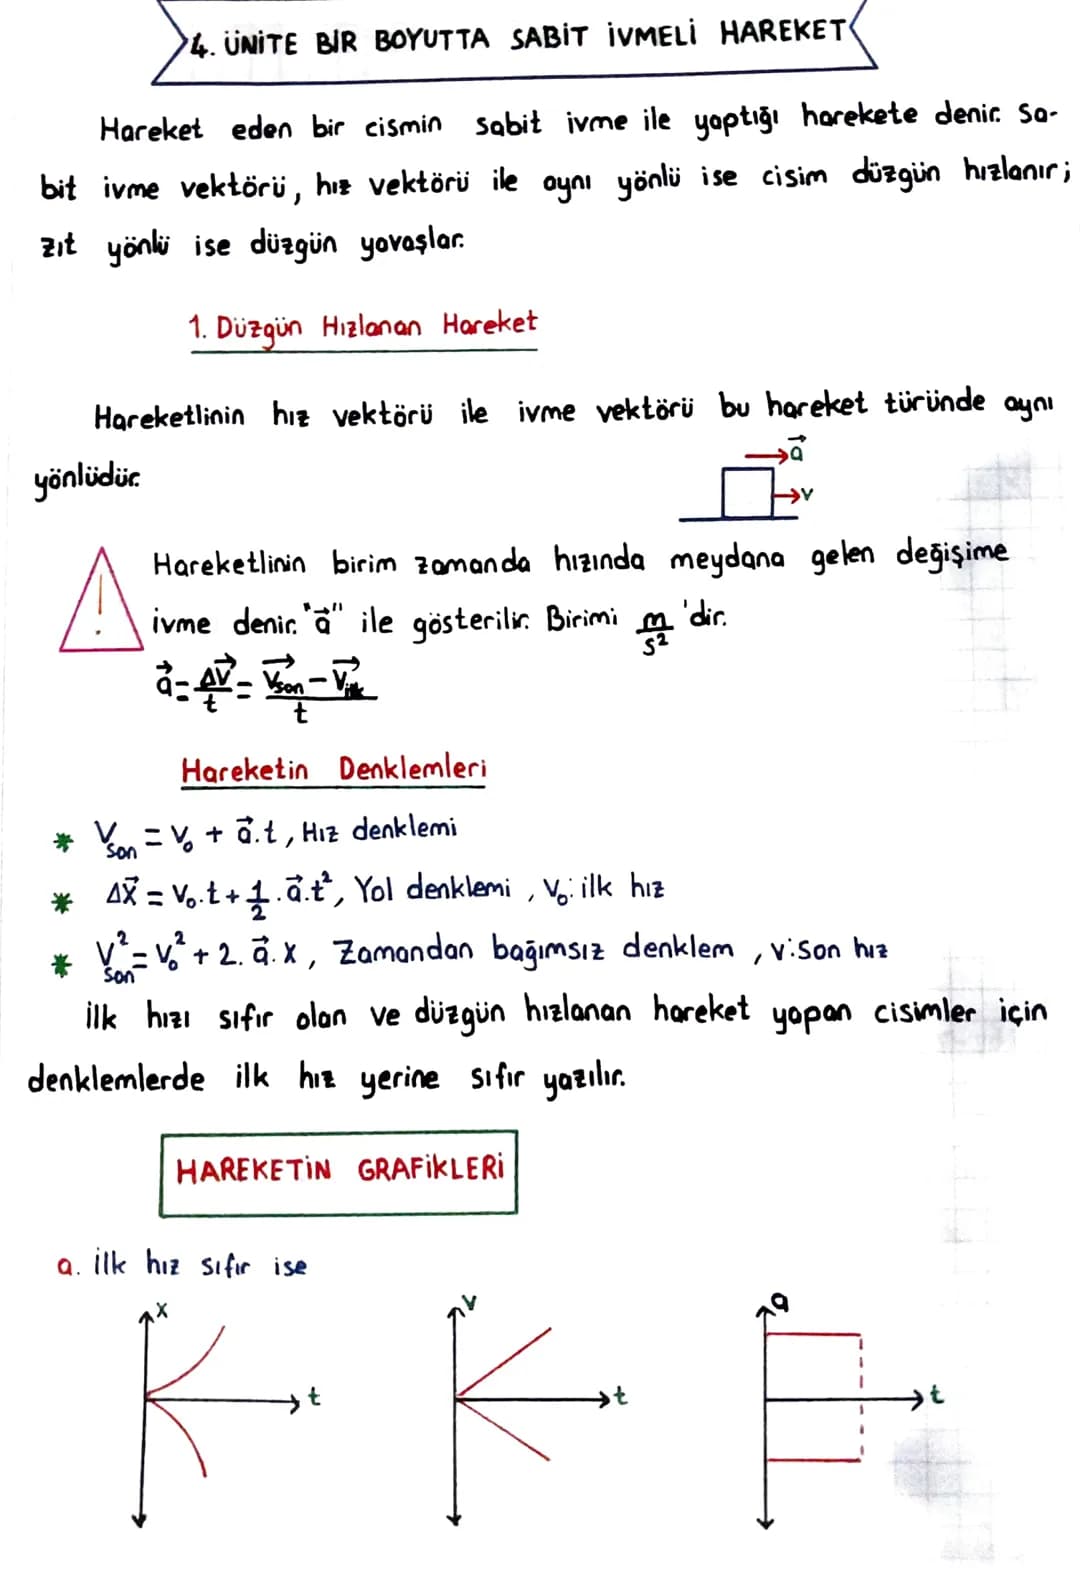 4. ÜNİTE BİR BOYUTTA SABİT İVMELİ HAREKET
Hareket eden bir cismin sabit ivme ile yaptığı harekete denir. Sa-
bit ivme vektörü, hız vektörü ile aynı yönlü ise cisim düzgün hızlanır;
zıt yönlü ise düzgün yavaşlar.
1. Düzgün Hızlanan Hareket
Hareketlinin hız vektörü ile ivme vektörü bu hareket türünde aynı
yönlüdür.
a⃗
v
Hareketlinin birim zamanda hızında meydana gelen değişime
!
ivme denir. "a⃗" ile gösterilir. Birimi m/s² 'dir.
a⃗ = ΔV⃗/t = (V⃗son − V⃗ilk)/t
Hareketin Denklemleri
* Vson = V₀ + a⃗.t, Hız denklemi
* Δx⃗ = V₀.t + 1/2.a⃗.t², Yol denklemi, V₀: ilk hız
* V²son = V₀² + 2.a⃗.x, Zamandan bağımsız denklem, v: Son hız
İlk hızı sıfır olan ve düzgün hızlanan hareket yapan cisimler için
denklemlerde ilk hız yerine sıfır yazılır.
HAREKETİN GRAFİKLERİ
a. İlk hız sıfır ise
x v a
t t t